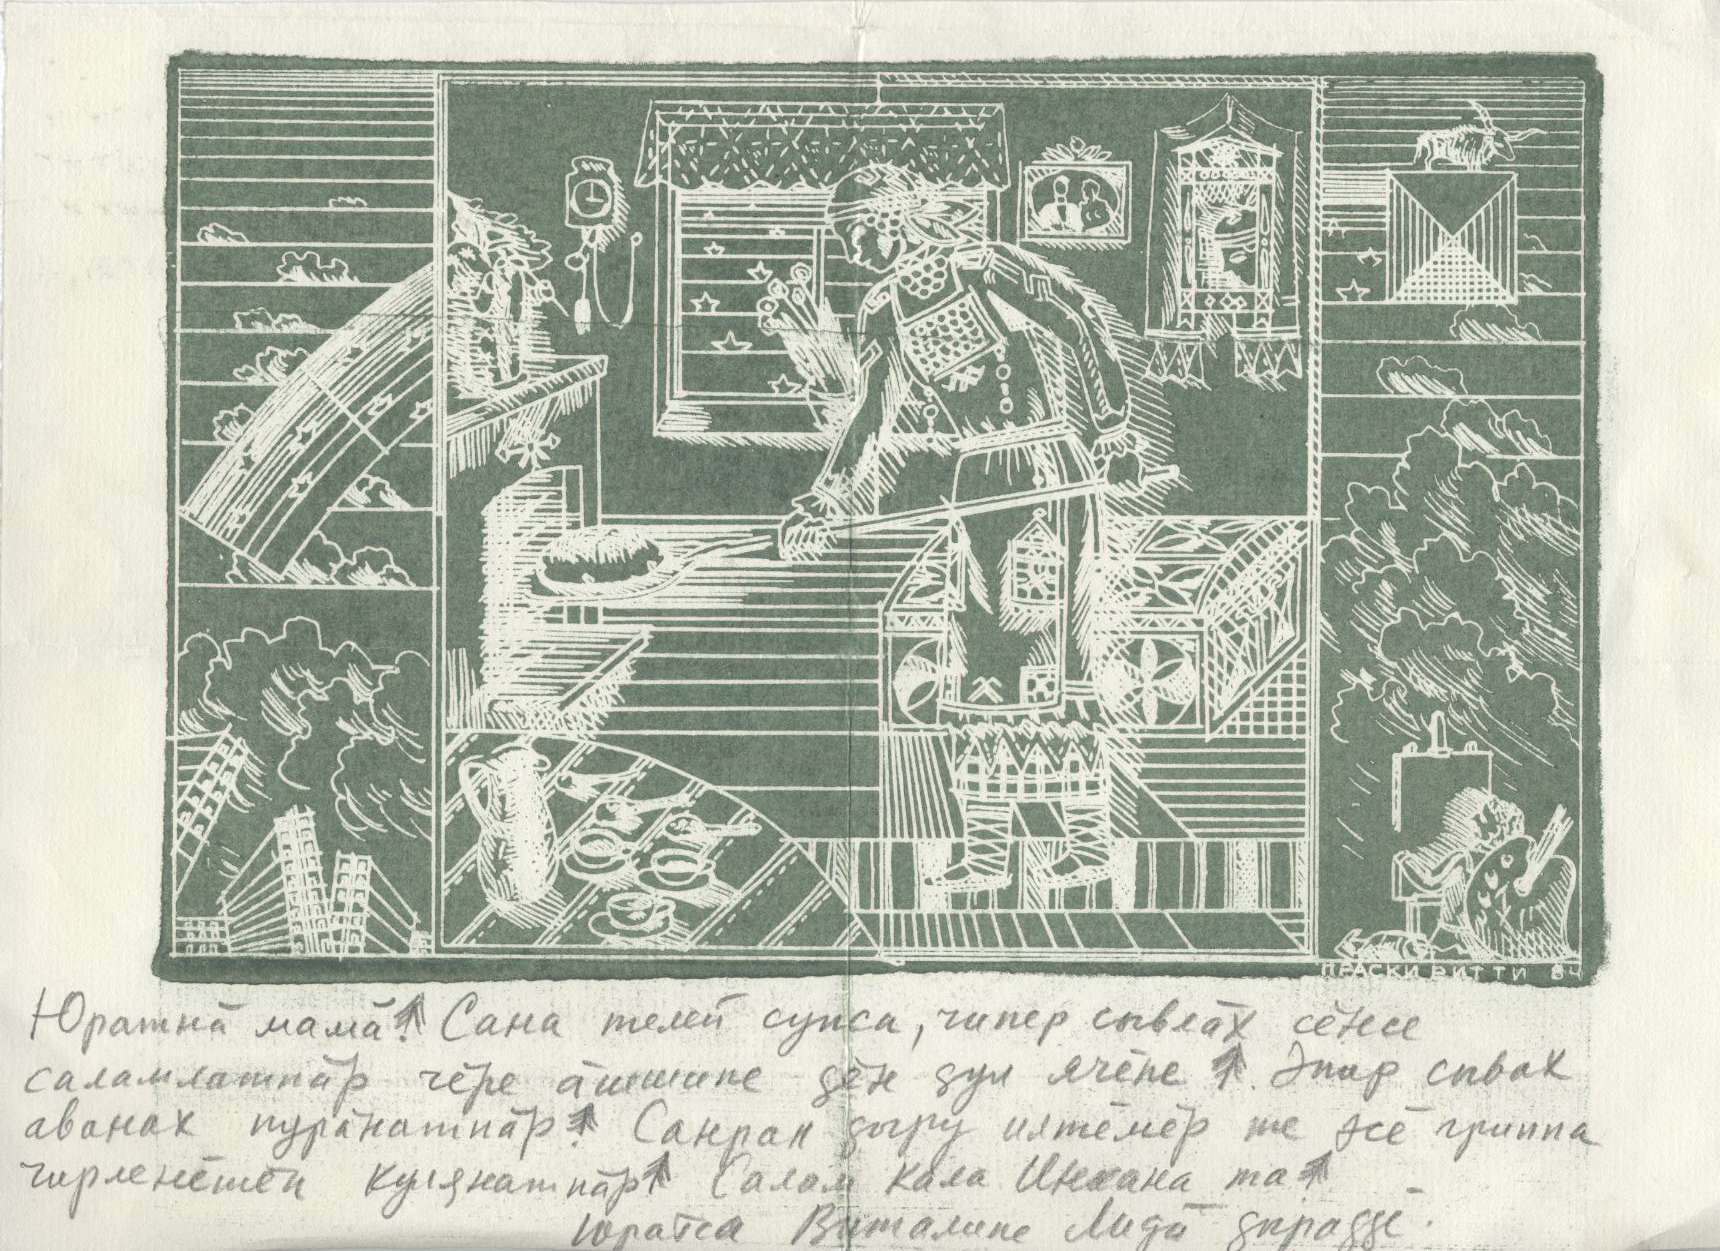 ПРАСКИ ВИТТИ 84
Юратнӑ мама! Сана телей сунса, чипер сывлӑх сӗнсе
саламлатпӑр чӗре ӑшшипе ҫӗн ҫул ячӗпе! Эпир сывах
аванах пурӑнатпӑр! Санран ҫыру илтӗмӗр те эсӗ гриппа
чирленӗшӗн кулянатпӑр! Салам кала та!
Юратса Виталипе Лида